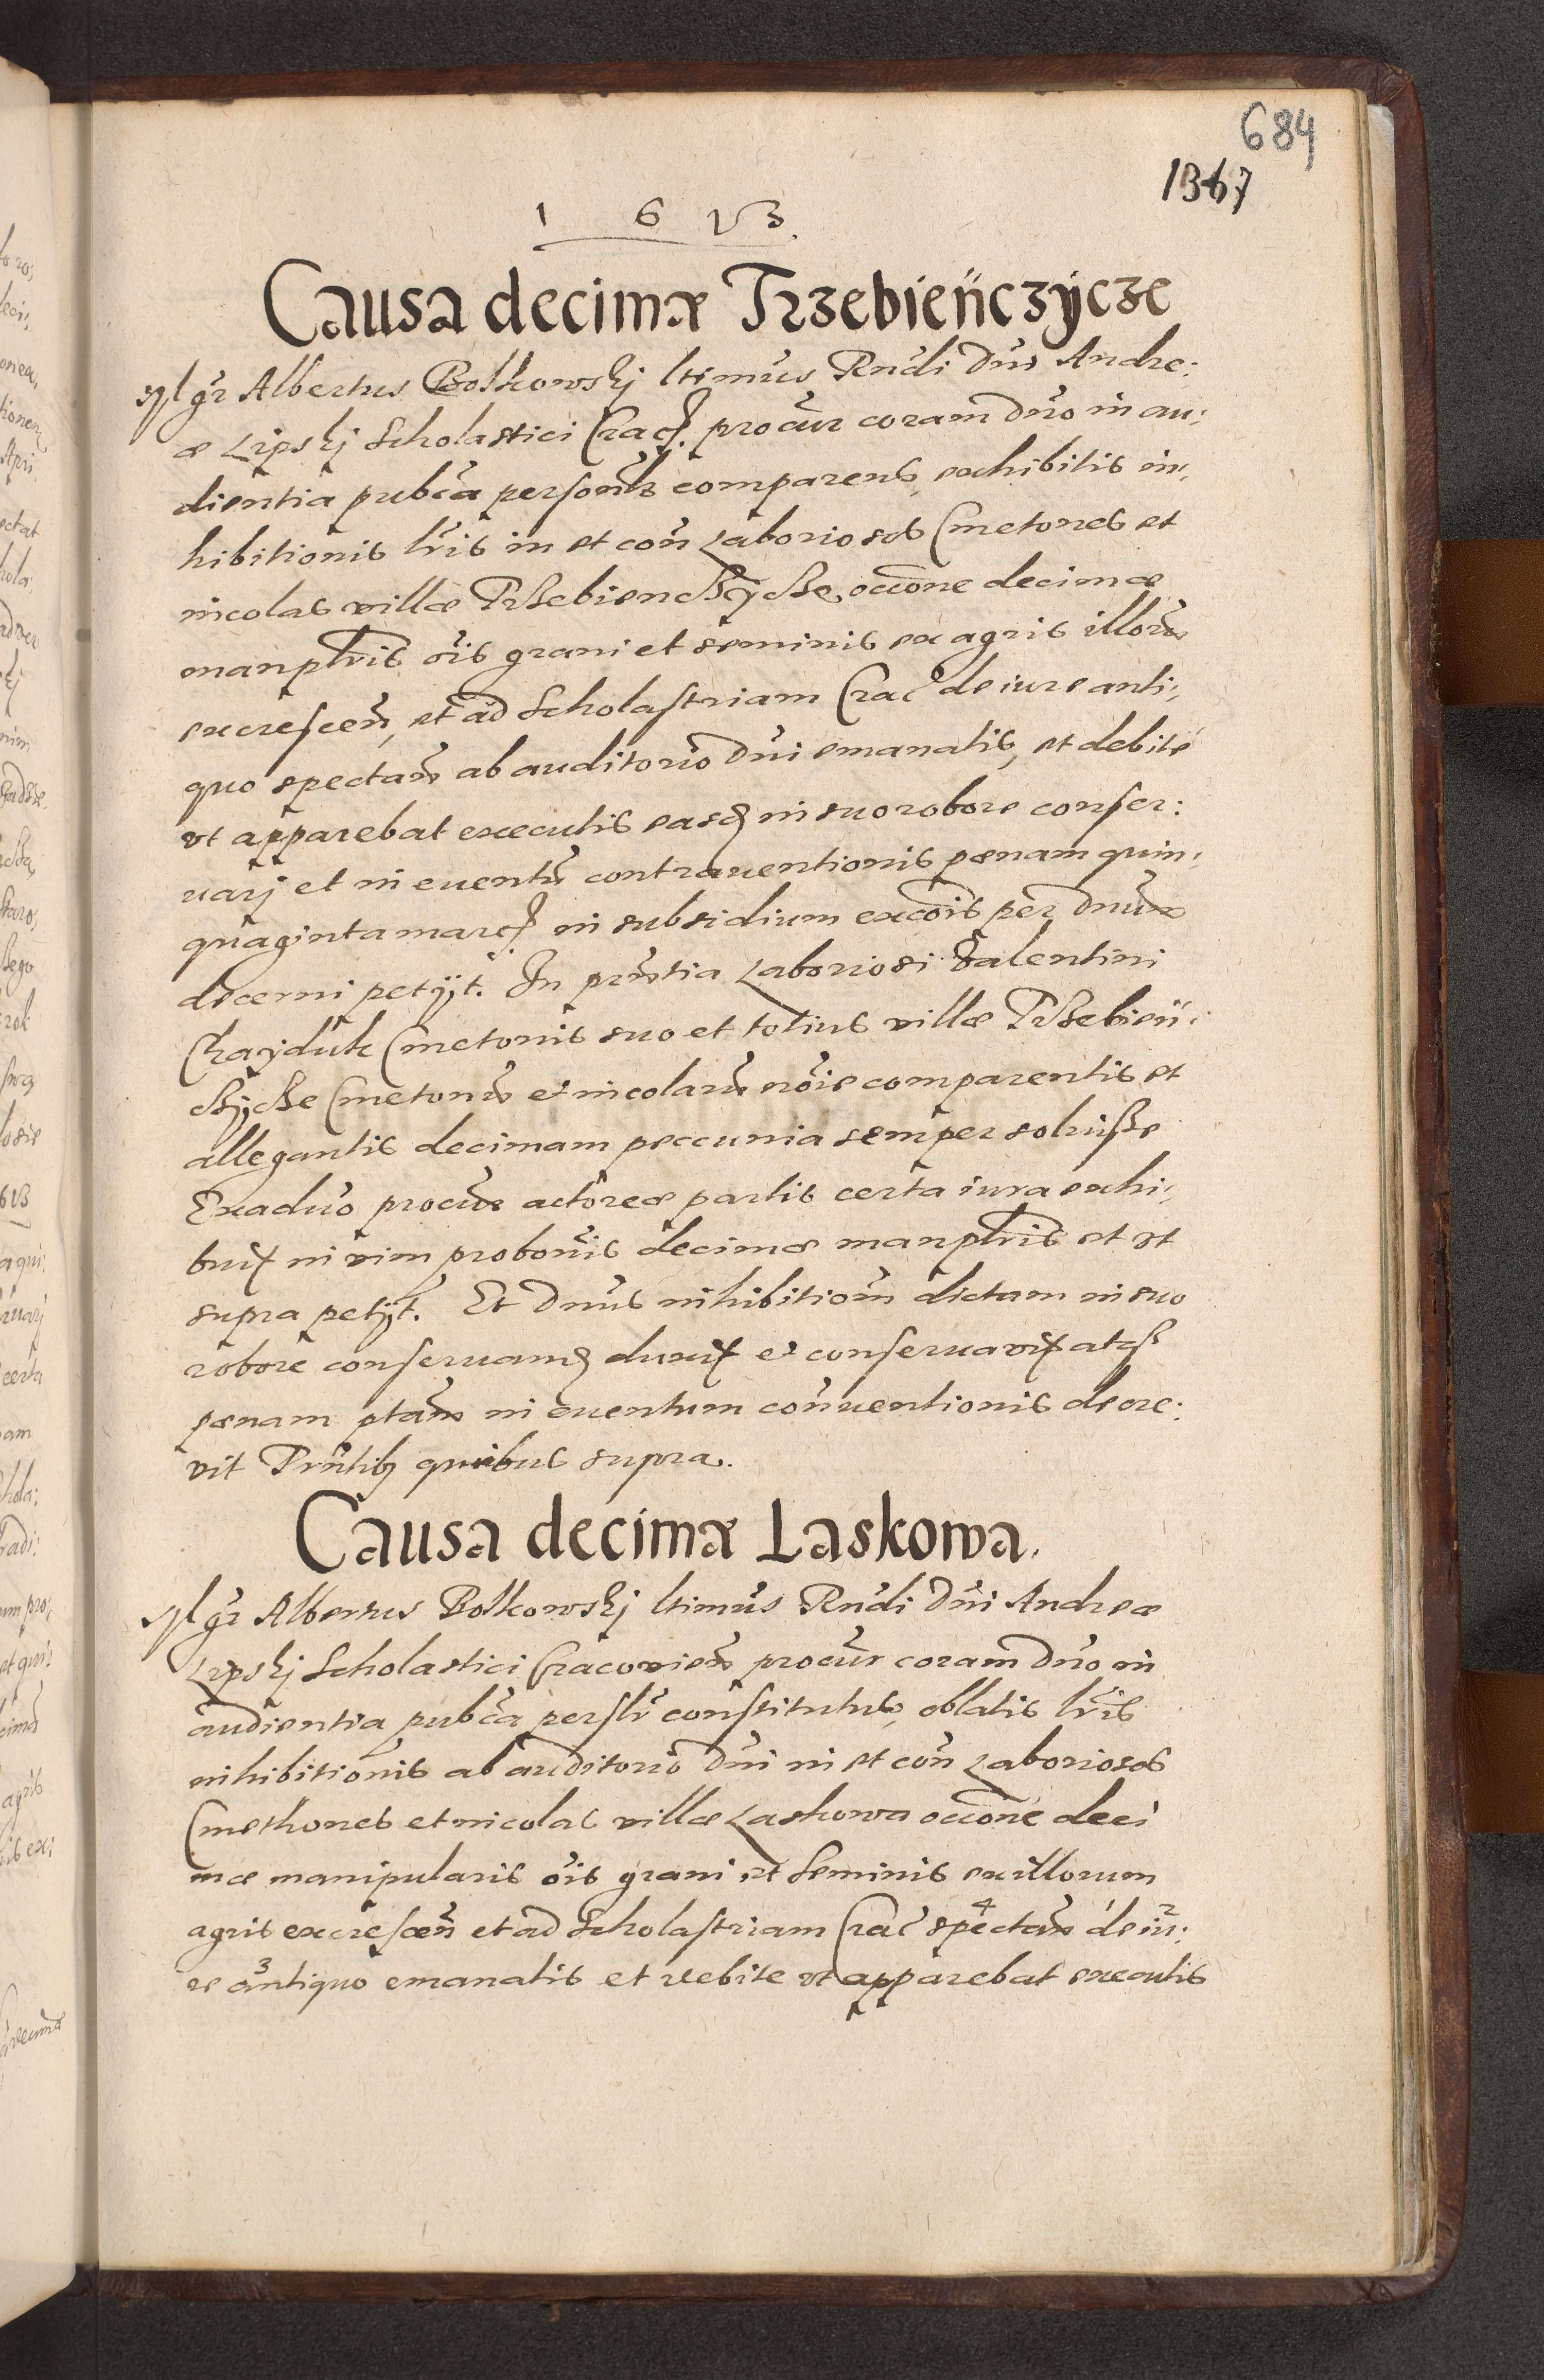 684
1367
1 6 V3
Causa decimæ Trzebieńczÿcze
Mgr Albertus Bolkowskj ltimus Rndi Dni Andre:
æ Lipskj Scholastici Crac. procur coram Dno in au:
dientia pubca personlr comparens, exhibitis in:
hibitionis lris in et con Laboriosos Cmetones et
incolas villæ Trzebienczÿcze, occone decimæ
manplris ois grani et seminis ex agris illorũ
excrescen, et ad Scholastriam Crac de iure anti:
quo spectan ab auditorio Dni emanatis, et debite
vt apparebat executis easq in suo robore conser:
uarj et in euentũ contrauentionis pænam quin:
quaginta marc in subsidium excois per Dnum
decerni petijt. In prntia Laboriosi Valentini
Chayduk Cmetonis suo et totius villæ Trzebień:
czÿcze Cmetonũ et incolarũ noie comparentis et
allegantis decimam peccunia semper soluisse
Exaduo procur actoreæ partis certa iura exhi:
buit in vim probonis decimæ manplris et vt
supra petijt. Et Dnus inhibitiom dictam in suo
robore conseruand duxit et conseruavit atq
pænam ptam in euentum conuentionis decre:
vit Prntib quibus supra.
Causa decimæ Laskowa.
Mgr Albertus Bolkowskj ltimus Rndi Dni Andreæ
Lipskj Scholastici Cracovien procur coram Dno in
audientia pubca perslr constitutus, oblatis lris
inhibitionis ab auditorio Dni in et con Laboriosos
Cmethones et incolas villæ Laskowa occone deci
mæ manipularis ois grani et Seminis ex illorum
agris excrescen et ad Scholastriam Crac spectan de iu:
re antiquo emanatis et debite vt apparebat executis